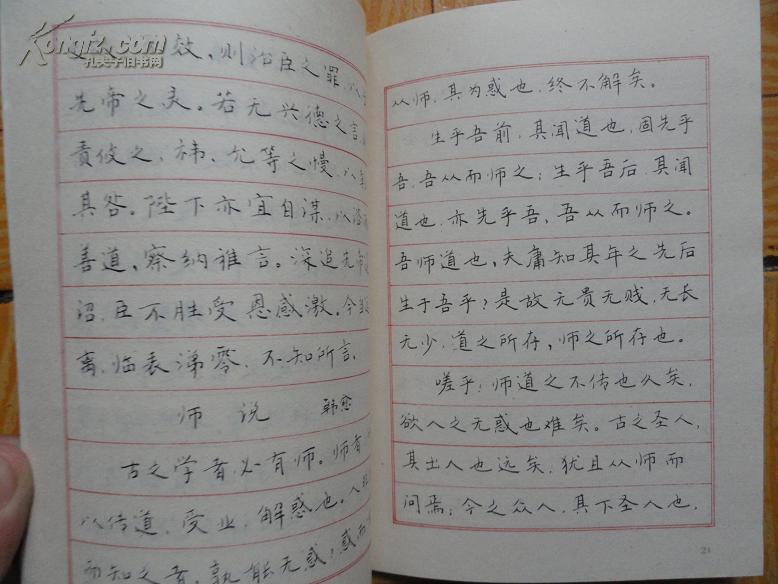 Kongfz.com
孔夫子旧书网
效，则治臣之罪，以
先帝之灵。若无兴德之言
责攸之、祎、允等之慢，以
其咎。陛下亦宜自谋，以咨
善道，察纳雅言。深追先帝
诏，臣不胜受恩感激。今当
离，临表涕零，不知所言。
师说 韩愈
古之学者必有师。师者
以传道，受业，解惑也。人
而知之者，孰能无惑？惑而
从师，其为惑也，终不解矣。
生乎吾前，其闻道也，固先乎
吾，吾从而师之；生乎吾后，其闻
道也，亦先乎吾，吾从而师之。
吾师道也，夫庸知其年之先后
生于吾乎？是故无贵无贱，无长
无少，道之所存，师之所存也。
嗟乎！师道之不传也久矣，
欲人之无惑也难矣。古之圣人，
其出人也远矣，犹且从师而
问焉；今之众人，其下圣人也，
21